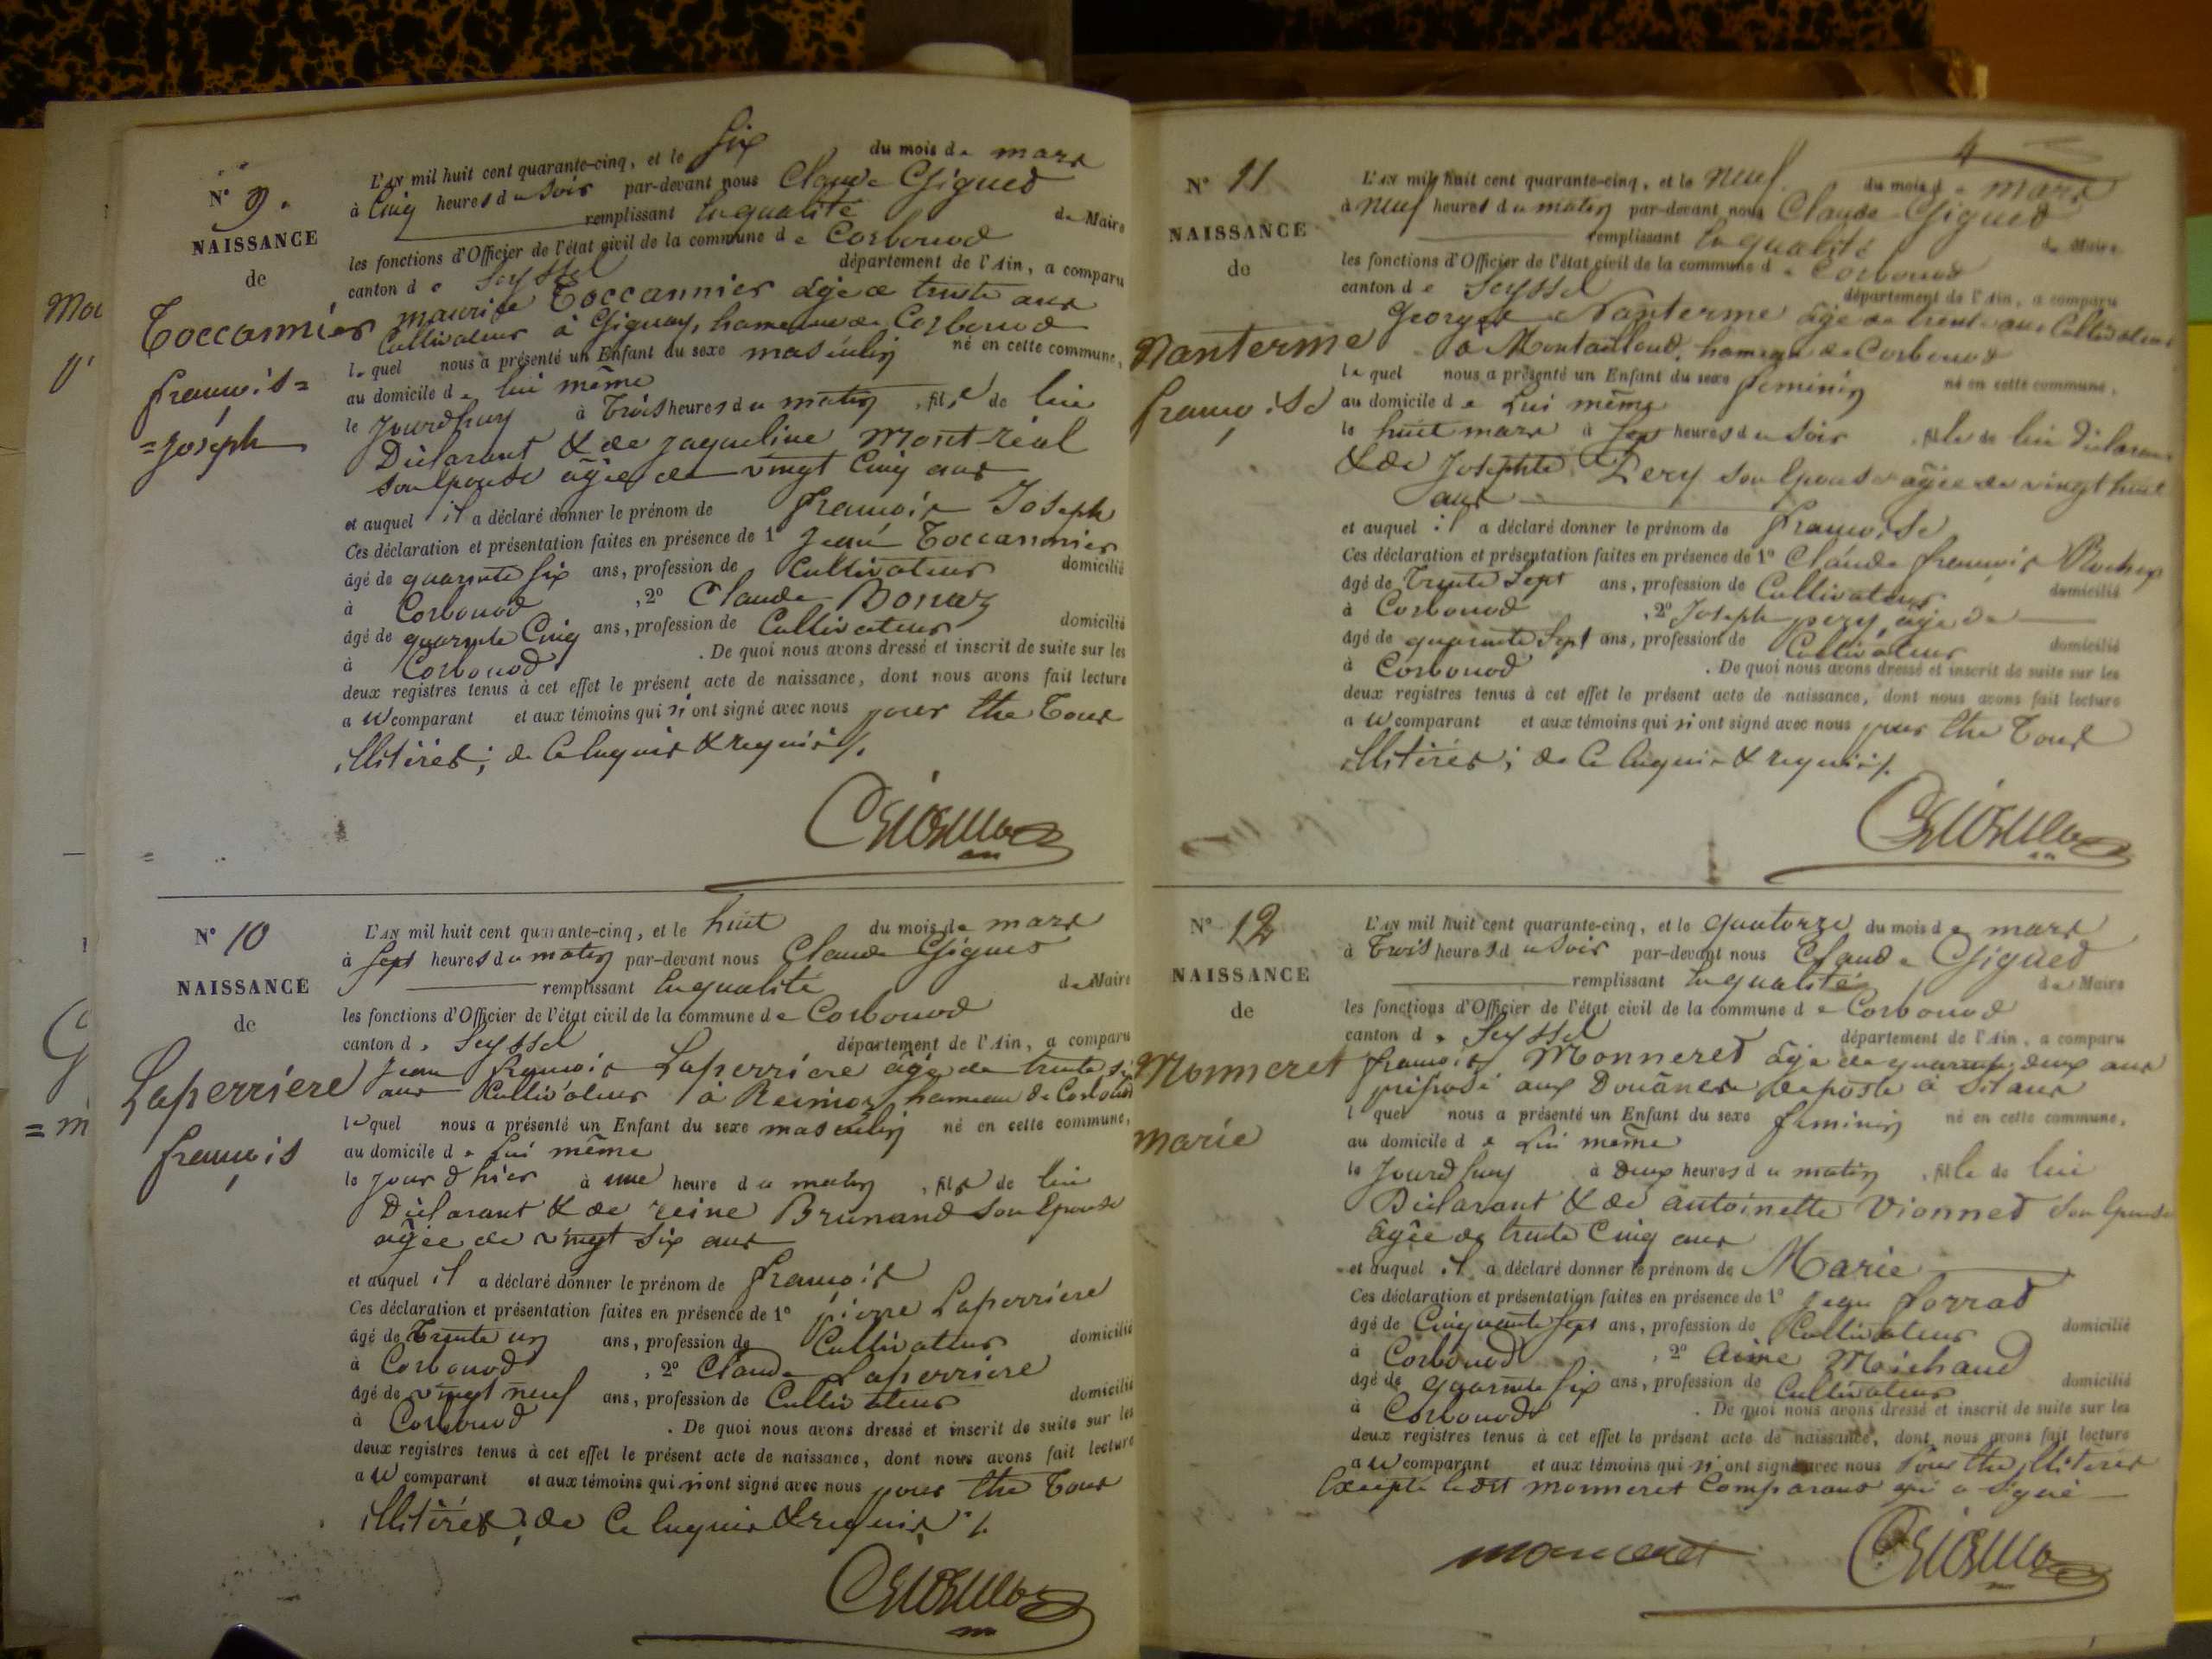 N° 9.
NAISSANCE
de
Toccannier
françois =
= Joseph
L'AN mil huit cent quarante-cinq, et le six du mois de mars
à cinq heures du soir par-devant nous Claude Gigued
remplissant la qualité de Maire
les fonctions d'Officier de l'état civil de la commune de Corbonod
canton de Seyssel département de l'Ain, a comparu
maurice Toccannier âgé de trente ans
Cultivateur à Gignay, hameau de Corbonod
lequel nous a présenté un Enfant du sexe masculin né en cette commune,
au domicile de lui même
le Jourd'huy à trois heures du matin, fils de lui
Déclarant & de jaqueline Montréal
son épouse âgée de vingt cinq ans
et auquel il a déclaré donner le prénom de françois Joseph
Ces déclaration et présentation faites en présence de 1° Jean Toccannier
âgé de quarante six ans, profession de Cultivateur domicilié
à Corbonod, 2° Claude Bonaz
âgé de quarante cinq ans, profession de Cultivateur domicilié
à Corbonod. De quoi nous avons dressé et inscrit de suite sur les
deux registres tenus à cet effet le présent acte de naissance, dont nous avons fait lecture
au comparant et aux témoins qui n'ont signé avec nous pour être tous
illitérés; de ce enquis & requis ./.
N° 10
NAISSANCE
de
Laperriere
françois
L'AN mil huit cent quarante-cinq, et le huit du mois de mars
à sept heures du matin par-devant nous Claude Gigued
remplissant la qualité de Maire
les fonctions d'Officier de l'état civil de la commune de Corbonod
canton de Seyssel département de l'Ain, a comparu
Jean françois Laperriere âgé de trente six
ans Cultivateur à Reimoz hameau de Corbonod
lequel nous a présenté un Enfant du sexe masculin né en cette commune,
au domicile de lui même
le jour d'hier à une heure du matin, fils de lui
Déclarant & de reine Brunand son épouse
âgée de vingt six ans
et auquel il a déclaré donner le prénom de françois
Ces déclaration et présentation faites en présence de 1° pierre Laperriere
âgé de trente un ans, profession de Cultivateur domicilié
à Corbonod, 2° Claude Laperriere
âgé de vingt neuf ans, profession de Cultivateur domicilié
à Corbonod. De quoi nous avons dressé et inscrit de suite sur les
deux registres tenus à cet effet le présent acte de naissance, dont nous avons fait lecture
au comparant et aux témoins qui n'ont signé avec nous pour être tous
illitérés; de ce enquis & requis ./.
4
N° 11
NAISSANCE
de
Nanterme
françoise
L'AN mil huit cent quarante-cinq, et le neuf du mois de mars
à neuf heures du matin par-devant nous Claude Gigued
remplissant la qualité de Maire
les fonctions d'Officier de l'état civil de la commune de Corbonod
canton de Seyssel département de l'Ain, a comparu
Georges Nanterme âgé de trente ans Cultivateur
à Montailloud, hameau de Corbonod
lequel nous a présenté un Enfant du sexe féminin né en cette commune,
au domicile de lui même
le huit mars à sept heures du soir, fille de lui Déclarant
& de Josephte Pery son épouse âgée de vingt huit
ans
et auquel il a déclaré donner le prénom de françoise
Ces déclaration et présentation faites en présence de 1° Claude françois Rochex
âgé de trente sept ans, profession de Cultivateur domicilié
à Corbonod, 2° Joseph pery, âgé de
âgé de quarante sept ans, profession de Cultivateur domicilié
à Corbonod. De quoi nous avons dressé et inscrit de suite sur les
deux registres tenus à cet effet le présent acte de naissance, dont nous avons fait lecture
au comparant et aux témoins qui n'ont signé avec nous pour être tous
illitérés; de ce enquis & requis ./.
N° 12
NAISSANCE
de
Monneret
marie
L'AN mil huit cent quarante-cinq, et le quatorze du mois de mars
à trois heures du soir par-devant nous Claude Gigued
remplissant la qualité de Maire
les fonctions d'Officier de l'état civil de la commune de Corbonod
canton de Seyssel département de l'Ain, a comparu
françois Monneret âgé de quarante deux ans
préposé aux Douanes de poste à Silans
lquel nous a présenté un Enfant du sexe féminin né en cette commune,
au domicile de lui même
le Jourd'huy à deux heures du matin, fille de lui
Déclarant & de antoinette Vionnet son épouse
âgée de trente cinq ans
et auquel il a déclaré donner le prénom de Marie
Ces déclaration et présentation faites en présence de 1° Jean forrad
âgé de cinquante sept ans, profession de Cultivateur domicilié
à Corbonod, 2° aimé Maichaud
âgé de quarante six ans, profession de Cultivateur domicilié
à Corbonod. De quoi nous avons dressé et inscrit de suite sur les
deux registres tenus à cet effet le présent acte de naissance, dont nous avons fait lecture
au comparant et aux témoins qui n'ont signé avec nous pour être illitérés
Excepté ledit monneret comparant qui a signé
monneret